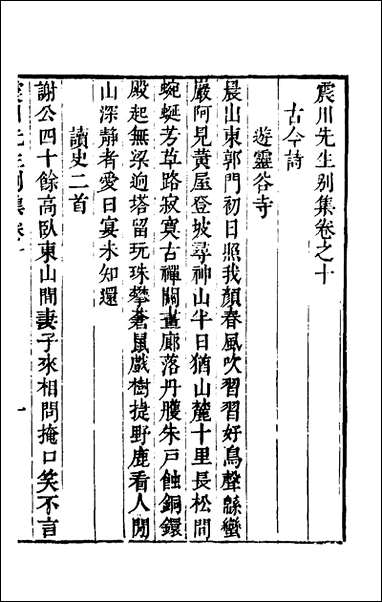 震川先生别集卷之十
古今詩
遊靈谷寺
晨出東郭門初日照我顏春風吹習習好鳥聲緜蠻
嚴阿見黃屋登坡尋神山半日猶山麓十里長松間
蜿蜒芳草路寂寞古禪關畫廊落丹雘朱戶蝕銅鐶
殿起無梁迥塔留玩珠攀蒼鼠戲樹捷野鹿看人閒
山深靜者愛日宴未知還
讀史二首
謝公四十餘高臥東山間妻子來相問掩口笑不言